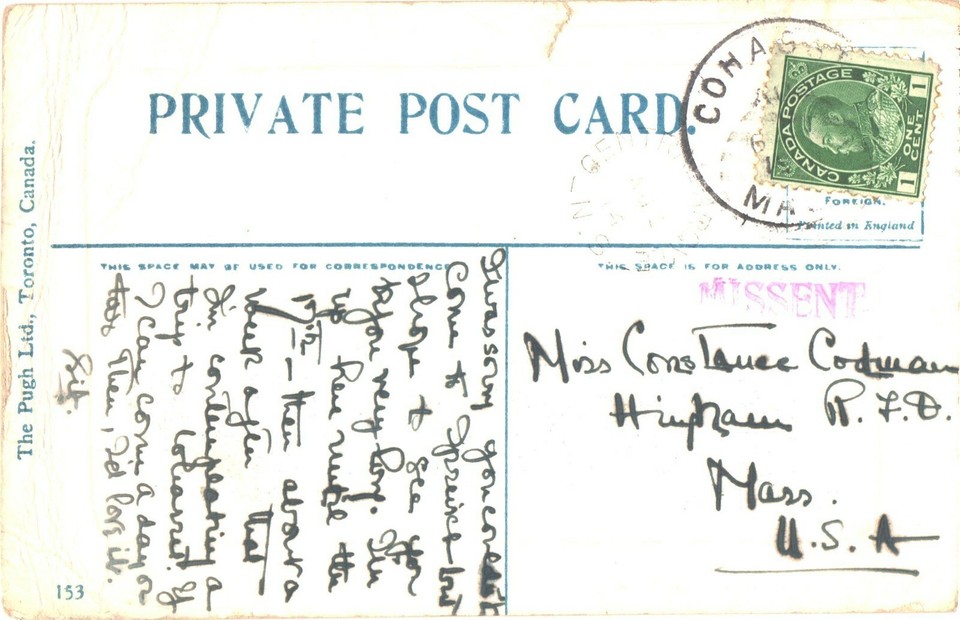 PRIVATE POST CARD.
COHAS
MA
CANADA POSTAGE
ONE CENT
1
1
FOREIGN.
Printed in England
The Pugh Ltd., Toronto, Canada.
THIS SPACE MAY BE USED FOR CORRESPONDENCE
THIS SPACE IS FOR ADDRESS ONLY.
MISSENT
I was sorry you couldn't
come to but
to see you
before very long. I'll be
up here until the
17th — then about a
week after that
I'm contemplating a
trip to Cohasset. If
I can come a day or
two then, I'd love it.
Miss Constance Codman
Hingham R.F.D.
Mass.
U.S.A
153